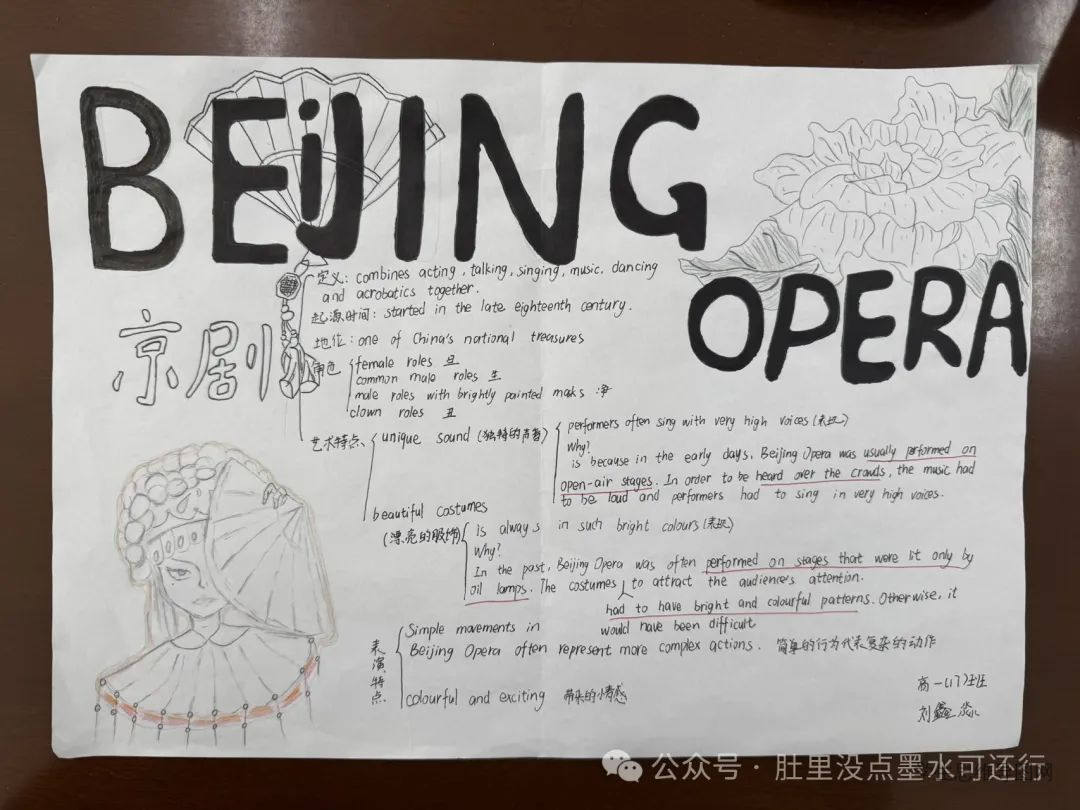 BEiJING
OPERA
京剧
定义: combines acting, talking, singing, music, dancing
and acrobatics together.
起源时间: started in the late eighteenth century.
地位: one of China's national treasures
角色
female roles 旦
common male roles 生
male roles with brightly painted masks 净
clown roles 丑
艺术特点
unique sound (独特的声音)
performers often sing with very high voices (表现)
Why?
is because in the early days, Beijing Opera was usually performed on
open-air stages. In order to be heard over the crowds, the music had
to be loud and performers had to sing in very high voices.
beautiful costumes
(漂亮的服饰)
is always in such bright colours (表现)
Why?
In the past, Beijing Opera was often performed on stages that were lit only by
oil lamps. The costumes to attract the audience's attention.
had to have bright and colourful patterns. Otherwise, it
would have been difficult
表演特点
Simple movements in
Beijing Opera often represent more complex actions. 简单的行为代表复杂的动作
colourful and exciting 带来的情感
高一(17)班
刘鑫淼
公众号·肚里没点墨水可还行